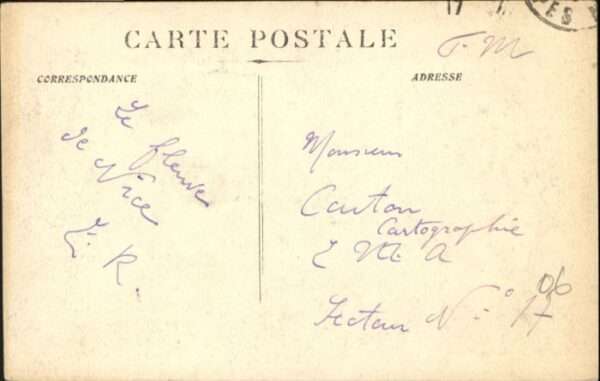 17 1
PES
CARTE POSTALE
F. M
CORRESPONDANCE
ADRESSE
Le fleuve
de Nice
E. R.
Monsieur
Canton
Cartographie
E M A
Secteur N° 17
06